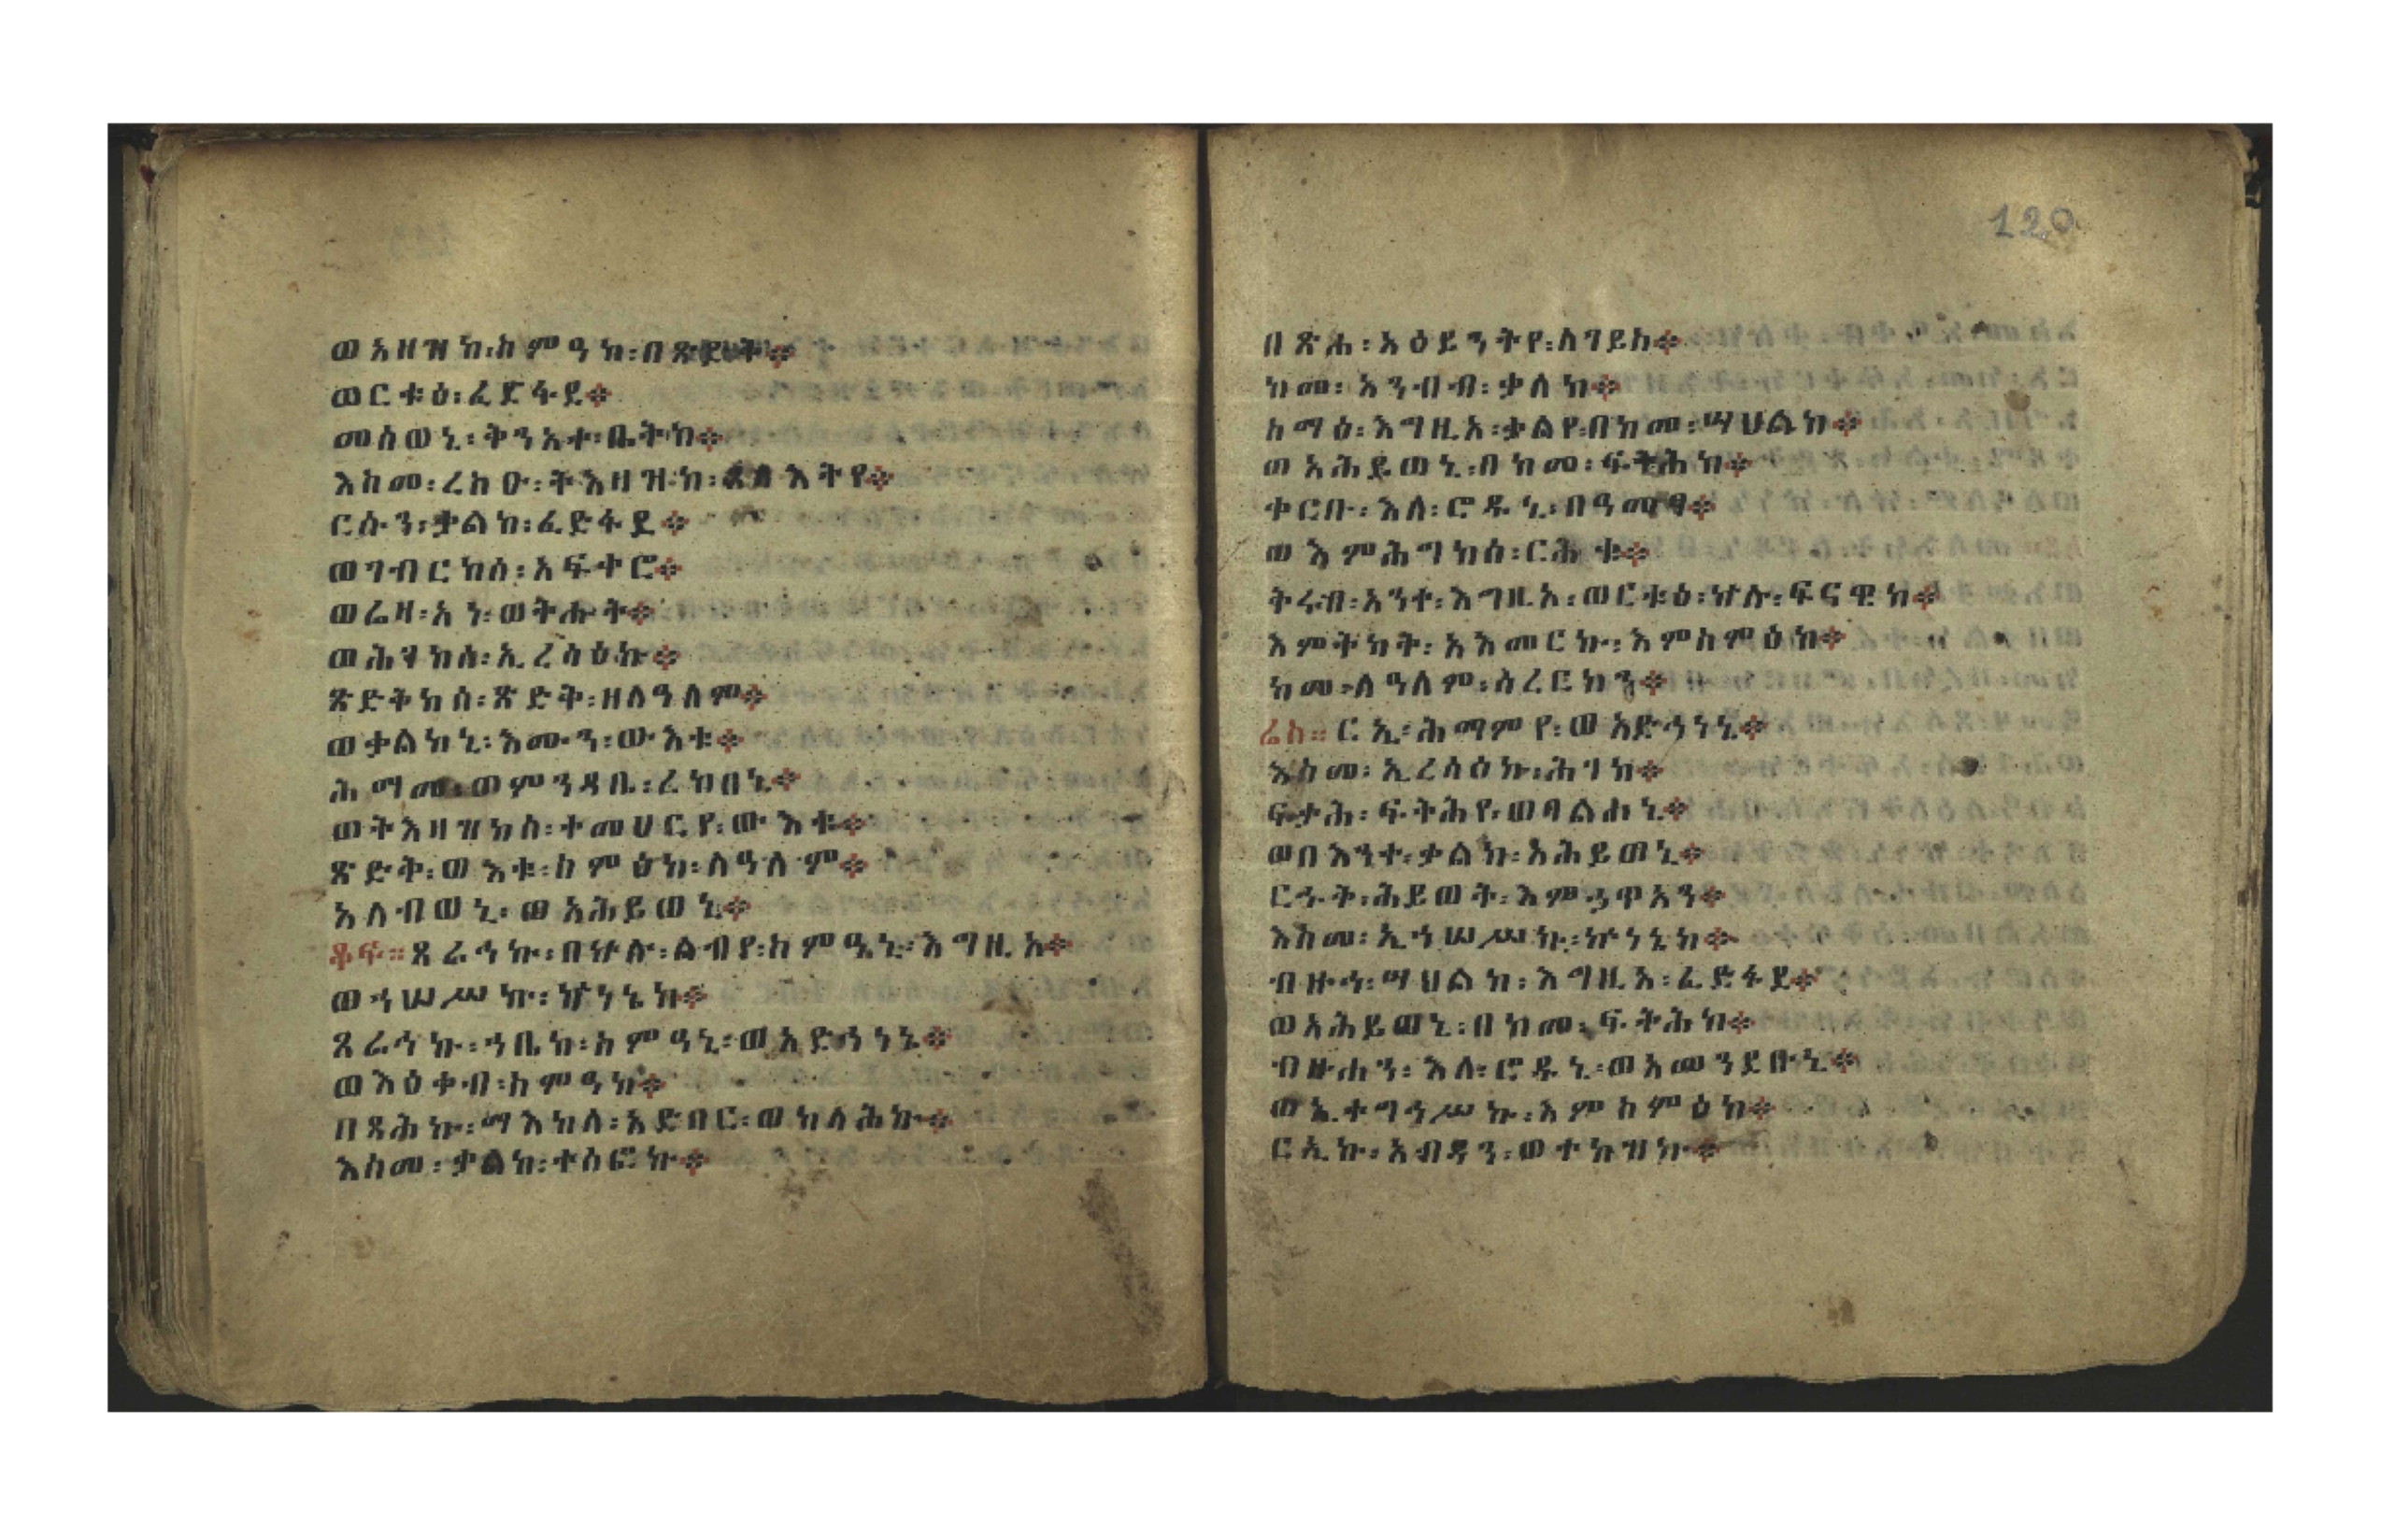 ወአዘዝከ፡ስምዓከ፡
ወርቱዕ፡ፈድፋደ፨
መሰወኒ፡ቅንአተ፡ቤትከ፨
እስመ፡ረስዑ፡ትእዛዝከ፡ጸላእትየ፨
ርሱን፡ቃልከ፡ፈድፋደ፨
ወገብርከሰ፡አፍቀሮ፨
ወሬዛ፡አነ፡ወትሑት፨
ወሕገከሰ፡ኢረሳዕኩ፨
ጽድቅከሰ፡ጽድቅ፡ዘለዓለም፨
ወቃልከኒ፡እሙን፡ውእቱ፨
ሕማም፡ወምንዳቤ፡ረከበኒ፨
ወትእዛዝከሰ፡ተመሀርየ፡ውእቱ፨
ጽድቅ፡ውእቱ፡ስምዕከ፡ለዓለም፨
አለብወኒ፡ወአሕይወኒ፨
ቆፍ።ጸራኅኩ፡በኵሉ፡ልብየ፡ስምዓኒ፡እግዚአ፨
ወኀሠሥኩ፡ኵነኔከ፨
ጸራኅኩ፡ኀቤከ፡ስምዓኒ፡ወአድኅነኒ፨
ወእዕቀብ፡ስምዓከ፨
በጻሕኩ፡ማእከለ፡አድባር፡ወከላሕኩ፨
እስመ፡ቃልከ፡ተሰፎኩ፨
120
በጽሐ፡አዕይንትየ፡ለገይስ፨
ከመ፡አንብብ፡ቃለከ፨
ስማዕ፡እግዚአ፡ቃልየ፡በከመ፡ሣህልከ፨
ወአሕይወኒ፡በከመ፡ፍትሕከ፨
ቀርቡ፡እለ፡ሮዱኒ፡በዓመፃ፨
ወእምሕግከሰ፡ርሕቁ፨
ቅሩብ፡አንተ፡እግዚአ፡ወርቱዕ፡ኵሉ፡ፍናዊከ፨
እምትካት፡አእመርኩ፡እምስምዕከ፨
ከመ፡ለዓለም፡ሳረርከን፨
ሬስ።ርኢ፡ሕማምየ፡ወአድኅነኒ፨
እስመ፡ኢረሳዕኩ፡ሕገከ፨
ፍታሕ፡ፍትሕየ፡ወባልሐኒ፨
ወበእንተ፡ቃልከ፡አሕይወኒ፨
ርኁቅ፡ሕይወት፡እምኃጥአን፨
እስመ፡ኢኀሠሥኩ፡ኵነኔከ፨
ብዙኅ፡ሣህልከ፡እግዚአ፡ፈድፋደ፨
ወአሕይወኒ፡በከመ፡ፍትሕከ፨
ብዙሐን፡እለ፡ሮዱኒ፡ወአመንደቡኒ፨
ወኢተግኅሥኩ፡እምስምዕከ፨
ርኢኩ፡አብዳን፡ወተከዝኩ፨